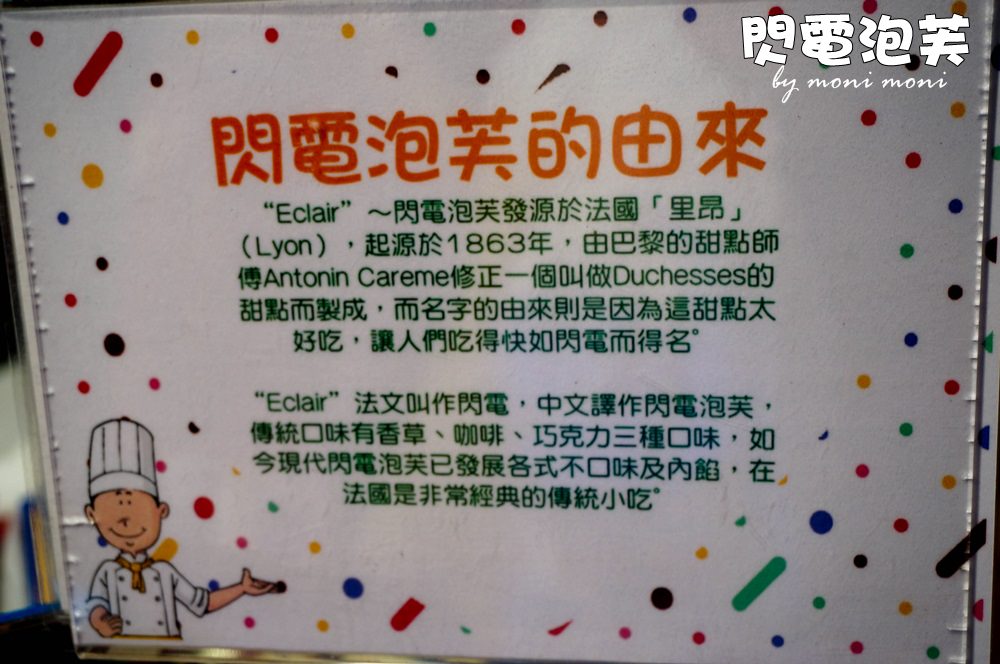 閃電泡芙
by moni moni
閃電泡芙的由來
“Eclair”～閃電泡芙發源於法國「里昂」
（Lyon），起源於1863年，由巴黎的甜點師
傅Antonin Careme修正一個叫做Duchesses的
甜點而製成，而名字的由來則是因為這甜點太
好吃，讓人們吃得快如閃電而得名。
“Eclair”法文叫作閃電，中文譯作閃電泡芙，
傳統口味有香草、咖啡、巧克力三種口味，如
今現代閃電泡芙已發展各式不口味及內餡，在
法國是非常經典的傳統小吃。